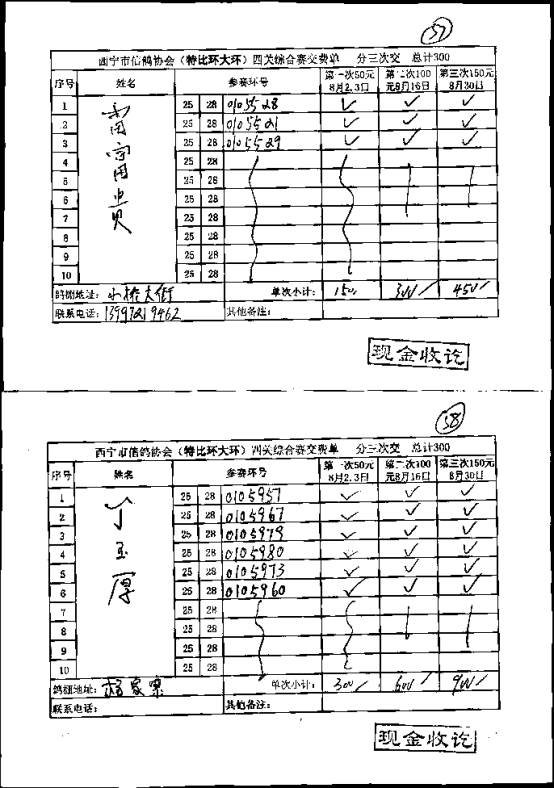 37
西宁市信鸽协会（特比环大环）四关综合赛交费单 分三次交 总计300
序号 姓名 参赛环号 第一次50元8月2.3日 第二次100元8月16日 第三次150元8月30日
1 25 28 0105528 ✓ ✓ ✓
2 25 28 0105521 ✓ ✓ ✓
3 25 28 0105529 ✓ ✓ ✓
4 25 28
5 25 28
6 25 28
7 25 28
8 25 28
9 25 28
10 25 28
鸽棚地址：小桥大街 单次小计： 150 300 450
联系电话： 其他备注：
现金收讫
38
西宁市信鸽协会（特比环大环）四关综合赛交费单 分三次交 总计300
序号 姓名 参赛环号 第一次50元8月2.3日 第二次100元8月16日 第三次150元8月30日
丁玉厚
1 25 28 0105957 ✓ ✓ ✓
2 25 28 0105967 ✓ ✓ ✓
3 25 28 0105979 ✓ ✓ ✓
4 25 28 0105980 ✓ ✓ ✓
5 25 28 0105973 ✓ ✓ ✓
6 25 28 0105960 ✓ ✓ ✓
7 25 28
8 25 28
9 25 28
10 25 28
鸽棚地址：杨家寨 单次小计： 300 600 900
联系电话： 其他备注：
现金收讫